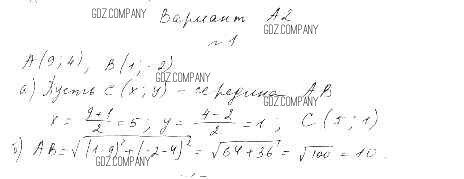 GDZ.COMPANY
Вариант А2
GDZ.COMPANY
№1
A(9; 4), B(1; -2)
GDZ.COMPANY
а) Пусть C(x; y) – середина AB
GDZ.COMPANY
x = (9+1)/2 = 5; y = (4-2)/2 = 1; C(5; 1)
GDZ.COMPANY
б) AB = √((1-9)² + (-2-4)²) = √(64+36) = √100 = 10.
GDZ.COMPANY